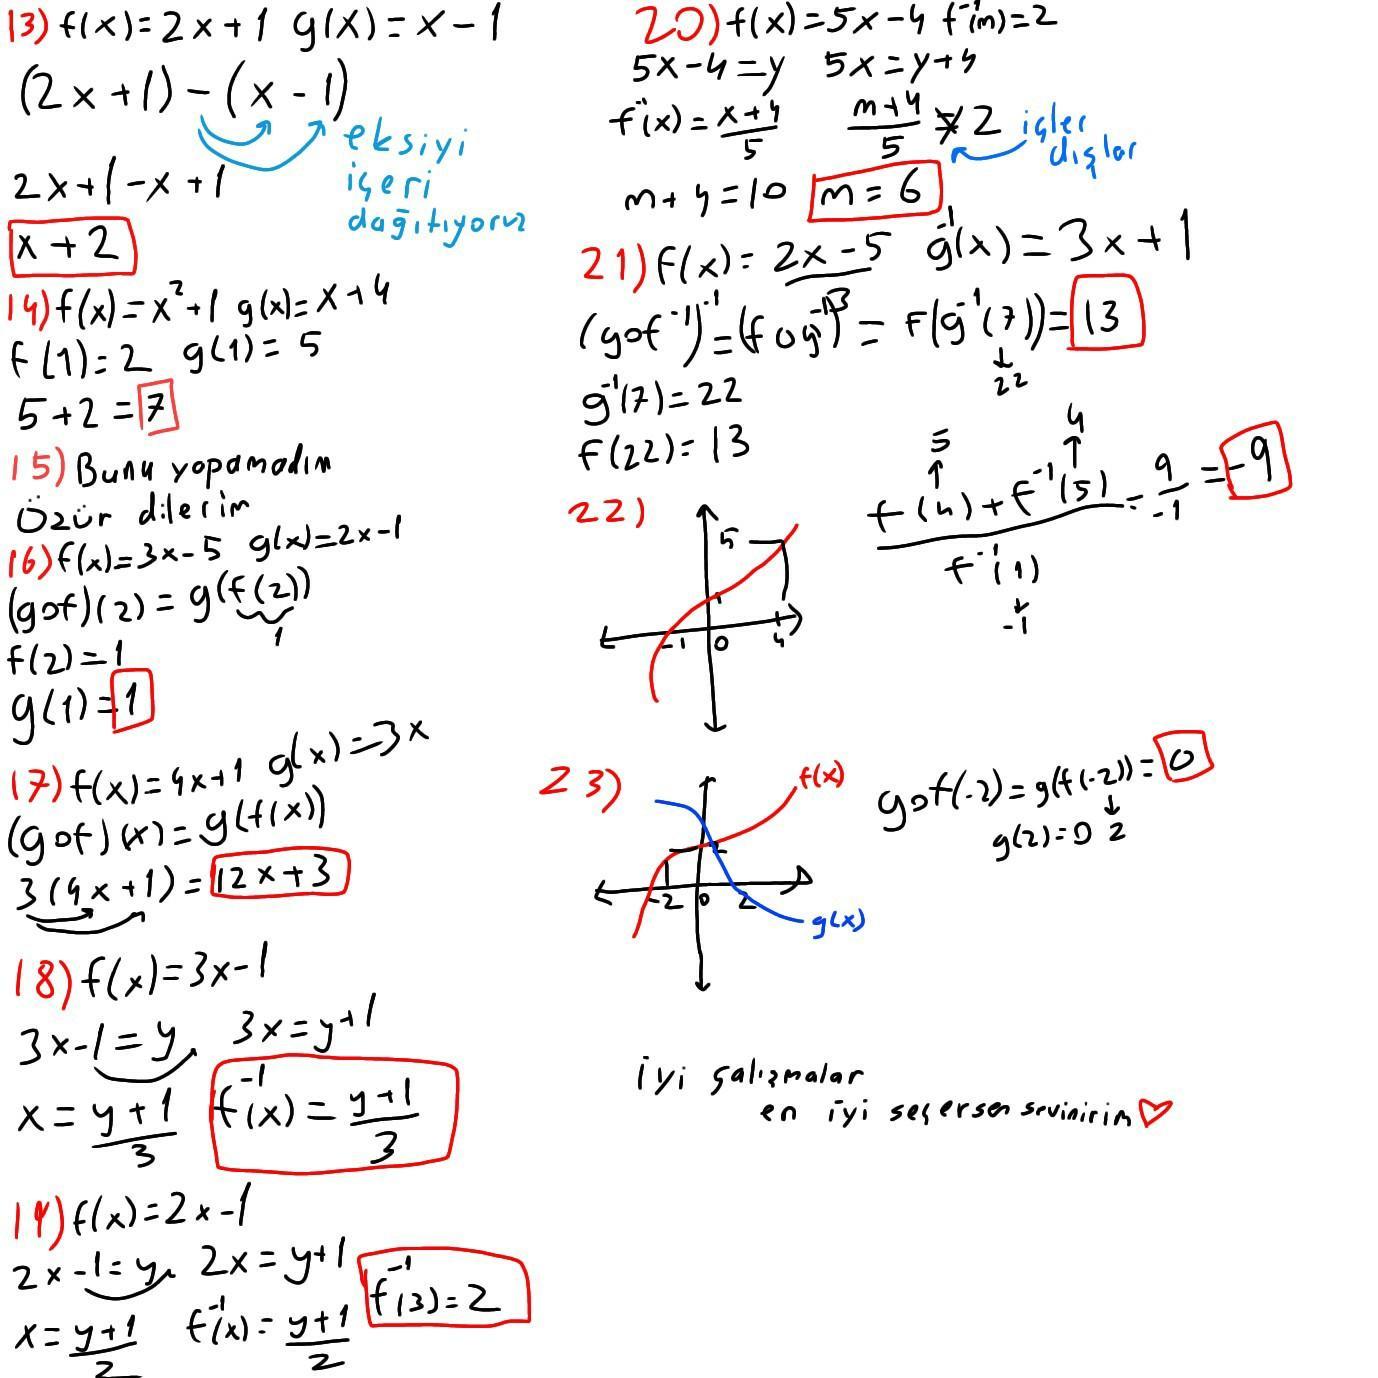 13) f(x)=2x+1 g(x)=x-1
(2x+1)-(x-1)
eksiyi
içeri
dağıtıyoruz
2x+1-x+1
x+2
14) f(x)=x²+1 g(x)=x+4
f(1)=2 g(1)=5
5+2=7
15) Bunu yapamadım
Özür dilerim
16) f(x)=3x-5 g(x)=2x-1
(gof)(2)=g(f(2))
1
f(2)=1
g(1)=1
17) f(x)=4x+1 g(x)=3x
(gof)(x)=g(f(x))
3(4x+1)=12x+3
18) f(x)=3x-1
3x-1=y 3x=y+1
x=y+1/3 f⁻¹(x)=y+1/3
19) f(x)=2x-1
2x-1=y 2x=y+1
x=y+1/2 f⁻¹(x)=y+1/2 f⁻¹(3)=2
20) f(x)=5x-4 f⁻¹(m)=2
5x-4=y 5x=y+4
f⁻¹(x)=x+4/5 m+4/5=2 içler
dışlar
m+4=10 m=6
21) f(x)=2x-5/3 g⁻¹(x)=3x+1
(gof⁻¹)⁻¹=(fog⁻¹)=f(g⁻¹(7))=13
22
g⁻¹(7)=22
f(22)=13
22)
5
1
-1 0 4
5 4
f(4)+f⁻¹(5)/f⁻¹(1)=9/-1=-9
-1
23)
f(x)
-2 0 2
g(x)
gof(-2)=g(f(-2))=0
g(2)=0 2
İyi çalışmalar
en iyi seçersen sevinirim♡